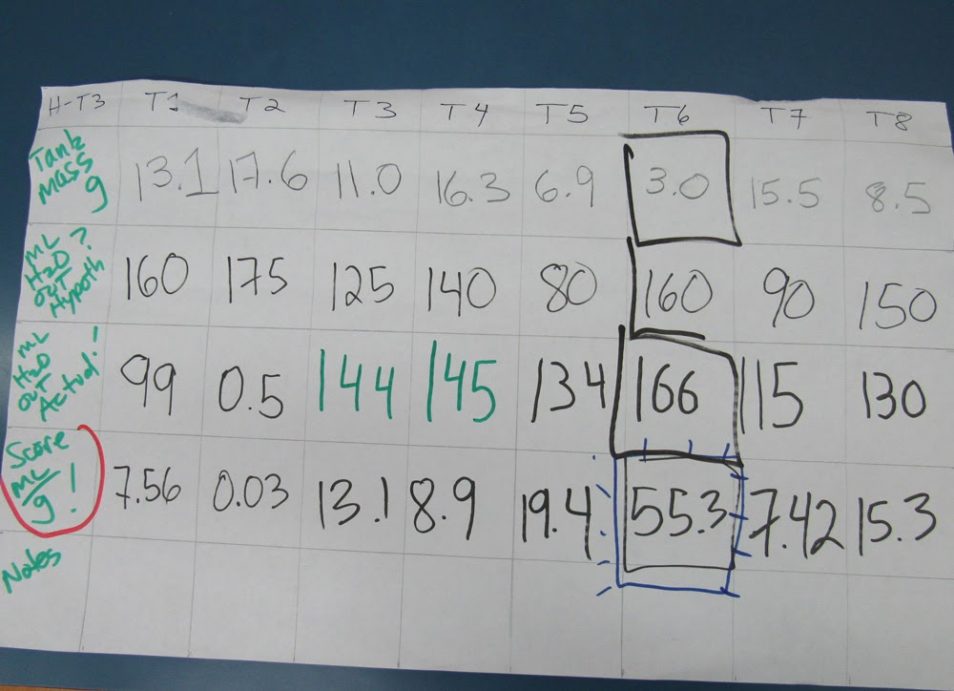 H-T3 T1 T2 T3 T4 T5 T6 T7 T8
Tank Mass g 13.1 17.6 11.0 16.3 6.9 3.0 15.5 8.5
mL H2O out Hypoth? 160 175 125 140 80 160 90 150
mL H2O out Actual! 99 0.5 144 145 134 166 115 130
Score mL/g! 7.56 0.03 13.1 8.9 19.4 55.3 7.42 15.3
Notes